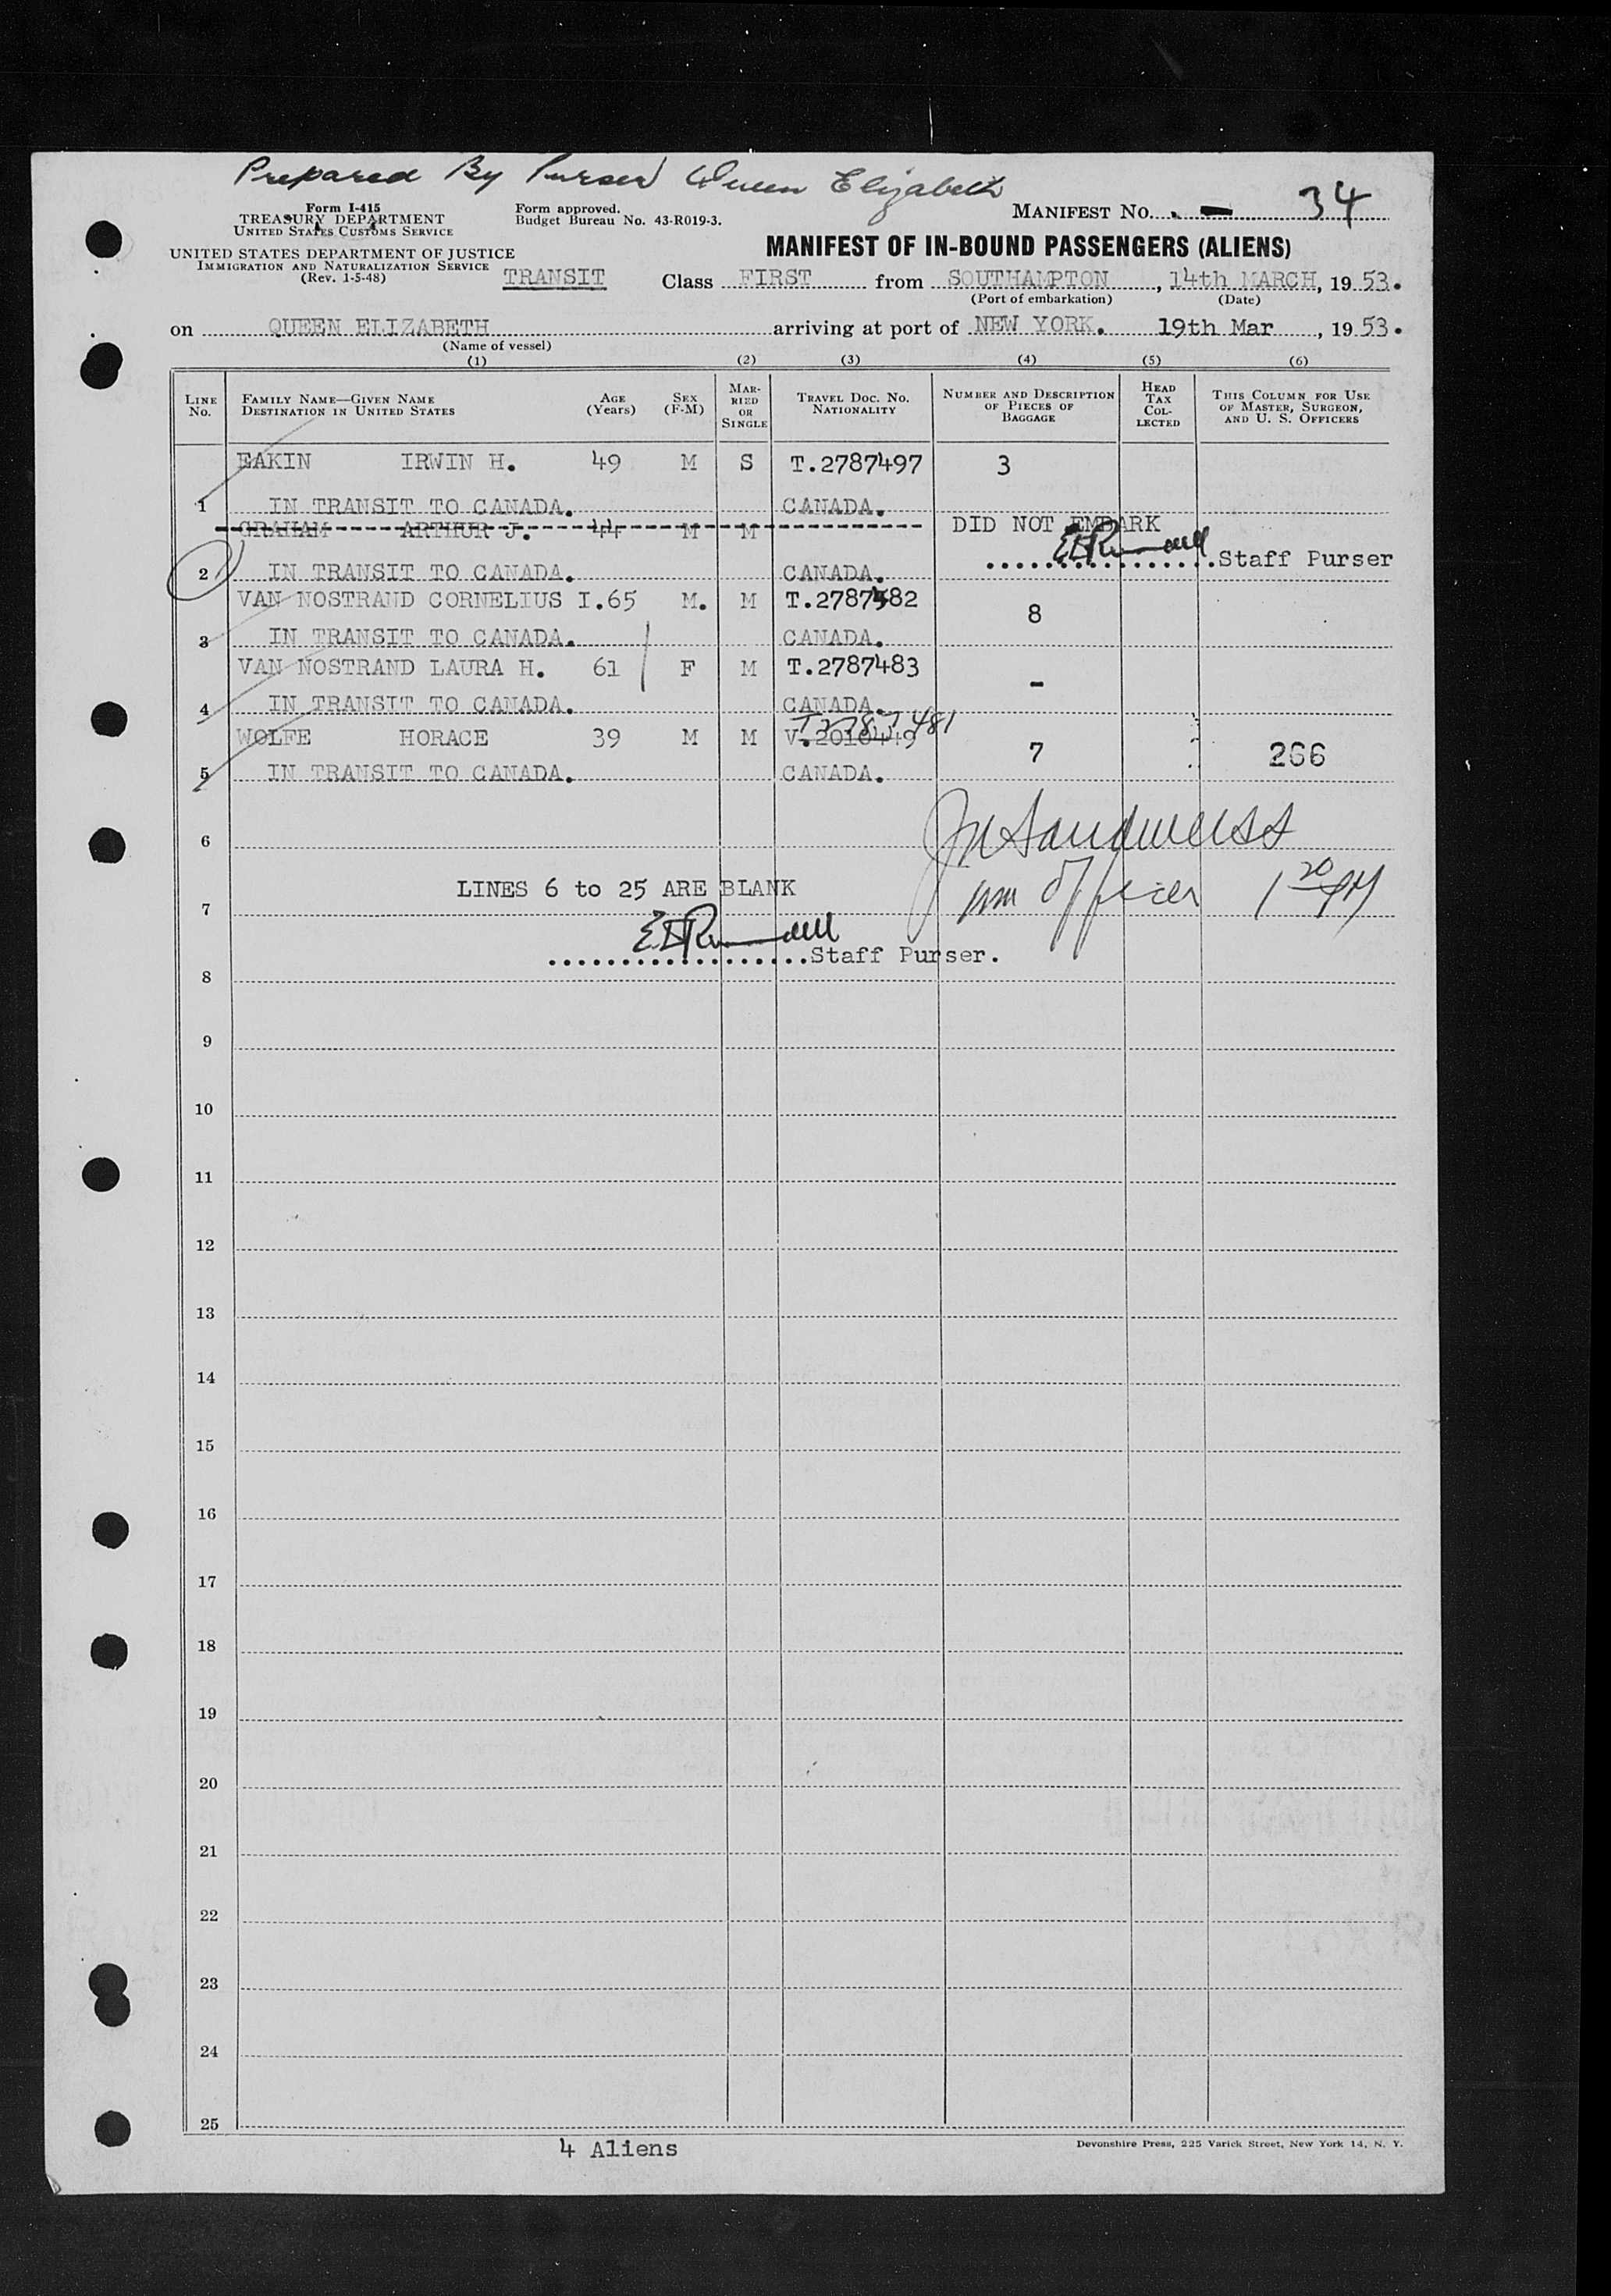 Prepared By Purser Queen Elizabeth
MANIFEST NO. . - 34
Form I-415
TREASURY DEPARTMENT
UNITED STATES CUSTOMS SERVICE
Form approved.
Budget Bureau No. 43-R019-3.
UNITED STATES DEPARTMENT OF JUSTICE
IMMIGRATION AND NATURALIZATION SERVICE
(Rev. 1-5-48)
MANIFEST OF IN-BOUND PASSENGERS (ALIENS)
TRANSIT Class FIRST from SOUTHAMPTON, 14th MARCH, 1953.
(Port of embarkation) (Date)
on QUEEN ELIZABETH arriving at port of NEW YORK. 19th Mar, 1953.
(Name of vessel)
(1) (2) (3) (4) (5) (6)
LINE No. FAMILY NAME—GIVEN NAME DESTINATION IN UNITED STATES AGE (Years) SEX (F-M) MARRIED OR SINGLE TRAVEL DOC. NO. NATIONALITY NUMBER AND DESCRIPTION OF PIECES OF BAGGAGE HEAD TAX COLLECTED THIS COLUMN FOR USE OF MASTER, SURGEON, AND U. S. OFFICERS
EAKIN IRWIN H. 49 M S T.2787497 3
1 IN TRANSIT TO CANADA. CANADA.
GRAHAM ARTHUR J. 44 M M DID NOT EMBARK
Staff Purser
2 IN TRANSIT TO CANADA. CANADA.
VAN NOSTRAND CORNELIUS I.65 M. M T.2787482 8
3 IN TRANSIT TO CANADA. CANADA.
VAN NOSTRAND LAURA H. 61 F M T.2787483 -
4 IN TRANSIT TO CANADA. CANADA.
T2787481
WOLFE HORACE 39 M M V.2010449 7 266
5 IN TRANSIT TO CANADA. CANADA.
6
Imm Officer 1 20 PM
LINES 6 to 25 ARE BLANK
7
Staff Purser.
8
9
10
11
12
13
14
15
16
17
18
19
20
21
22
23
24
25
4 Aliens
Devonshire Press, 225 Varick Street, New York 14, N. Y.